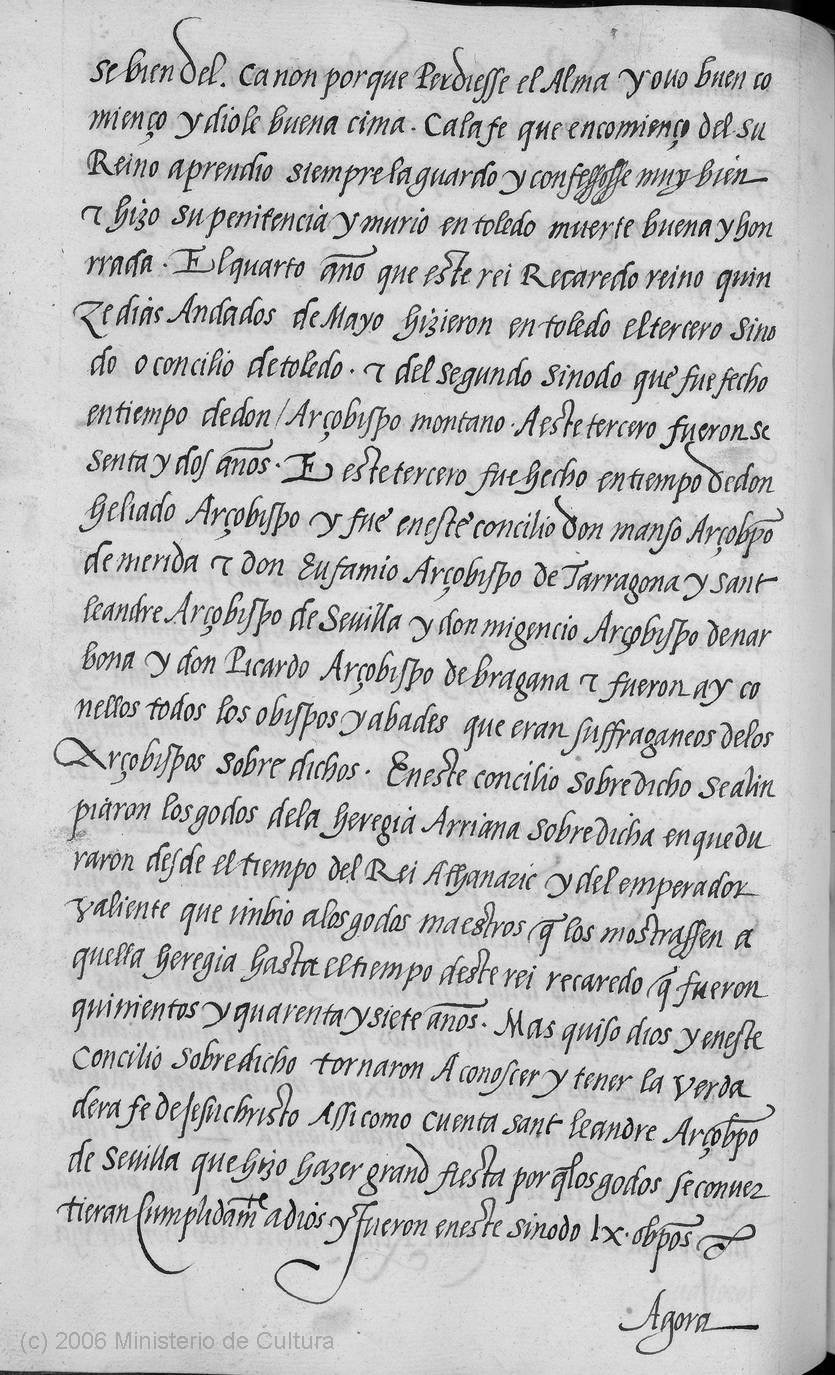 se bien del. Canon porque Perdiesse el Alma y ovo buen co
mienço y diole buena cima. Calafe que encomienço del su
Reino aprendio siempre la guardo y confessosse muy bien
⁊ hizo su penitencia y murio en toledo muerte buena y hon
rrada. El quarto año que este rei Recaredo reino quin
Ze dias Andados de Mayo hizieron en toledo el tercero Sino
do o concilio de toledo. ⁊ del segundo sinodo que fue fecho
en tiempo de don / Arçobispo montano. A este tercero fueron se
senta y dos años. E este tercero fue hecho en tiempo de don
heliado Arçobispo y fue en este concilio don manso Arçobpo
de merida ⁊ don Eufamio Arçobispo de Tarragona y sant
leandre Arçobispo de Sevilla y don migencio Arçobispo de nar
bona y don Picardo Arçobispo de bragana ⁊ fueron ay co
nellos todos los obispos y abades que eran suffraganeos delos
Arçobispos sobre dichos. En este concilio sobredicho se alin
piaron los godos dela heregia Arriana sobredicha en que du
raron desde el tiempo del Rei Athanaric y del emperador
valiente que inbio alos godos maestros q̃ los mostrassen a
quella heregia hasta el tiempo deste rei recaredo q̃ fueron
quinientos y quarenta y siete años. Mas quiso dios y en este
Concilio sobredicho tornaron A conoscer y tener la verda
dera fe de Jesuchristo Assi como cuenta sant leandre Arçobpo
de Sevilla que hizo hazer grand fiesta por q̃ los godos se conver
tieran Cumplidamte a dios y fueron en este sinodo lx. obpos
Agora
(c) 2006 Ministerio de Cultura